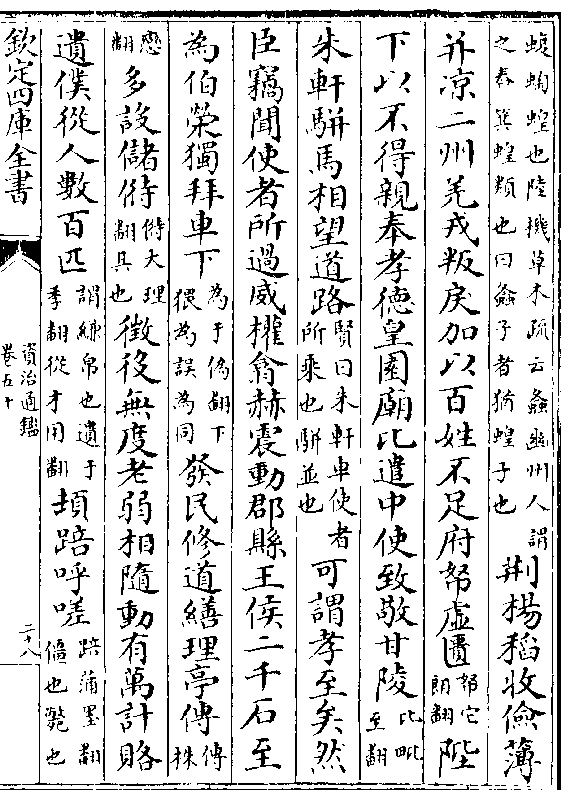 蝮蜪蝗也陸機草木疏云螽幽州人謂之舂箕蝗類也曰螽子者猶蝗子也荆楊稻收儉薄
并凉二州羌戎叛戾加以百姓不足府帑虛匱帑它朗翻陛
下以不得親奉孝德皇園廟比遣中使致敬甘陵比毗至翻
朱軒駢馬相望道路賢曰朱軒車使者所乘也駢並也可謂孝至矣然
臣竊聞使者所過威權翕赫震動郡縣王侯二千石至
為伯榮獨拜車下為于偽翻下猥為誤為同發民修道繕理亭傳傳株
戀翻多設儲偫偫大理翻具也徵役無度老弱相隨動有萬計賂
遺僕從人數百匹謂縑帛也遺于季翻從才用翻頓踣呼嗟踣蒲墨翻僵也斃也
欽定四庫全書
資治通鑑
卷五十
二十八